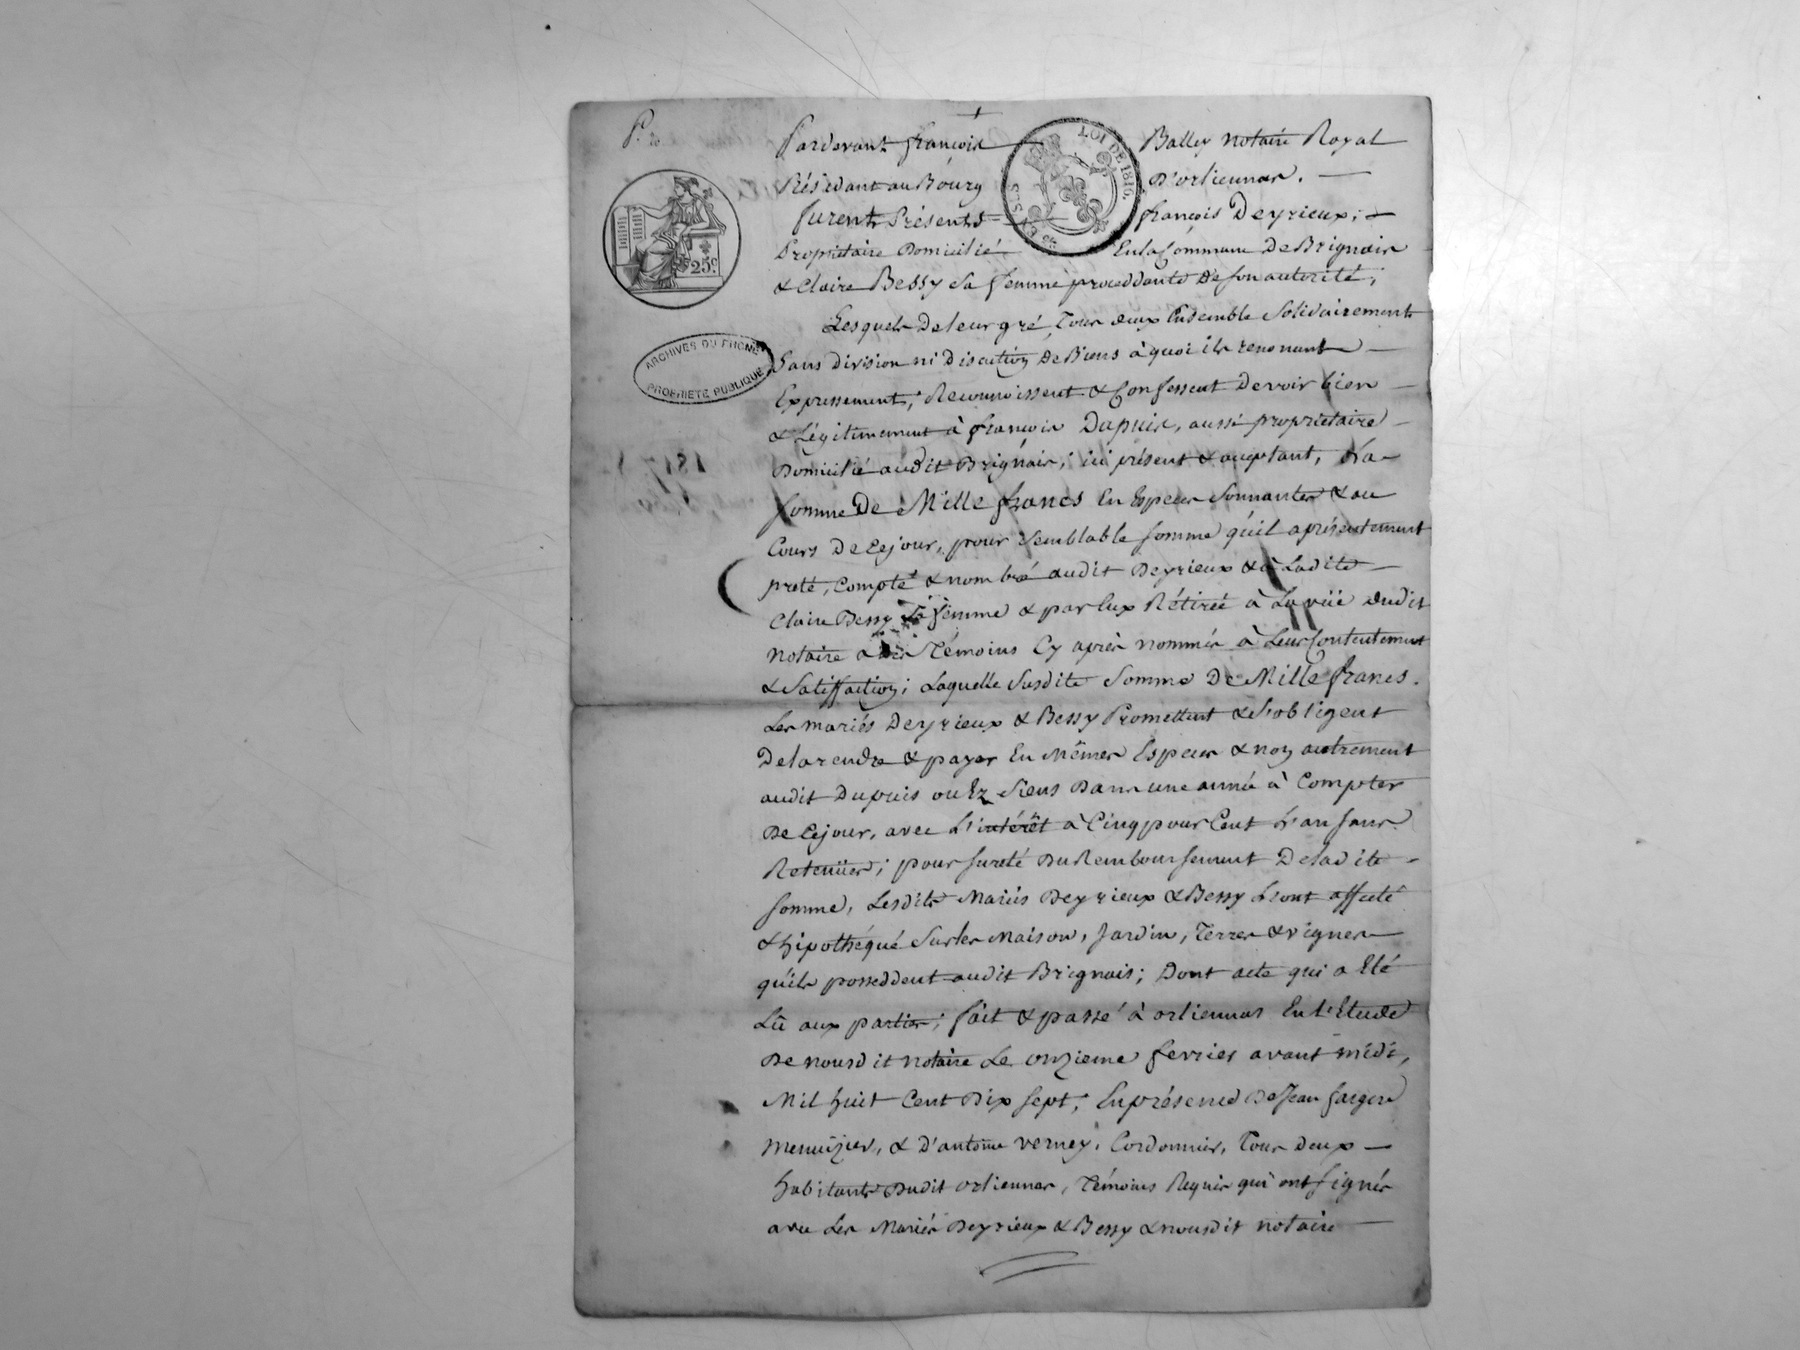 Pardevant françois Balley notaire Royal
Résidant au Bourg D'orliennas.
furent Présents françois Deyrieux;
Propriétaire Domicilié En la Commune De Brignais
& Claire Bessy sa femme proceddante de son autorité;
Lesquels De leur gré, Tous deux Ensemble Solidairement
Sans division ni Discution De Biens à quoi ils renonant
Expressement; Reconnoissent & Confessent Devoir bien
& Légitimement à françois Dupuis, aussi propriétaire
Domicilié audit Brignais; ici présent & acceptant, La
somme De Mille francs En Especes Sonnantes & au
Cours De Cejour, pour Semblable somme qu'il a présentement
preté, Compté & nombré audit Deyrieux & à Ladite
Claire Bessy Sa femme & par Eux Rétirée à La vüe dudit
notaire & des Témoins Cy après nommés à Leur Contentement
& Satisfaction; Laquelle Susdite Somme De Mille francs.
Les mariés Deyrieux & Bessy Promettent & S'obligent
De la rendre & payer En Mêmes Especes & non autrement
audit Dupuis ou Ez Siens Dans une année à Compter
De Cejour, avec L'intérêt à Cinq pour Cent L'an sans
Retenüe; pour sureté Du Remboursement De ladite
somme, Lesdits Mariés Deyrieux & Bessy L'ont affecté
& hipothéqué Sur les Maison, Jardin, Terres & vignes
qu'ils posseddent audit Brignais; Dont acte qui a Eté
Lû aux parties; fait & passé à orliennas En l'Etude
De nousdit notaire Le onzieme fevrier avant midi,
Mil huit Cent Dix sept; En présence De Jean
Menuizier, & D'antoine verney, Cordonnier, Tous Deux
habitants Dudit orliennas, Témoins Requis qui ont signés
avec Les Mariés Deyrieux & Bessy & nousdit notaire
LOI DE 1816.
25c.
ARCHIVES DU RHONE
PROPRIETE PUBLIQUE